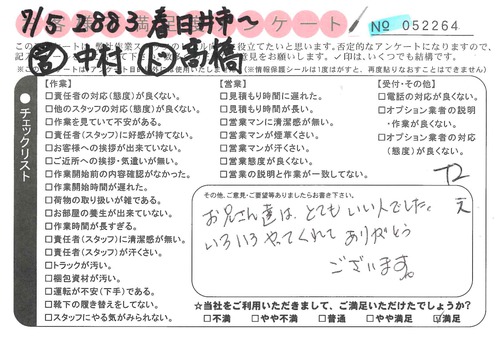 客様満足アンケート
7/5 2883 春日井市～
No 052264
営 中村 高橋
チェックリスト
【作業】
□責任者の対応(態度)が良くない。
□他のスタッフの対応(態度)が良くない。
□作業を見ていて不安がある。
□責任者(スタッフ)に好感が持てない。
□お客様への挨拶が出来ていない。
□ご近所への挨拶・気遣いが無い。
□作業開始前の内容確認がなかった。
□作業開始時間が遅れた。
□荷物の取り扱いが雑である。
□お部屋の養生が出来ていない。
□作業時間が長すぎる。
□責任者(スタッフ)に清潔感が無い。
□責任者(スタッフ)が汗くさい。
□トラックが汚い。
□梱包資材が汚い。
□運転が不安(下手)である。
□靴下の履き替えをしてない。
□スタッフにやる気がみられない。
【営業】
□見積もり時間に遅れた。
□見積もり時間が長い。
□営業マンに清潔感が無い。
□営業マンが煙草くさい。
□営業マンが汗くさい。
□営業態度が良くない。
□営業の説明と作業が一致してない。
【受付・その他】
□電話の対応が良くない。
□オプション業者の説明・作業が良くない。
□オプション業者の対応(態度)が良くない。
その他、ご意見・ご要望等ありましたらお書き下さい。
お兄さん達は、とてもいい人でした。
いろいろやってくれてありがとう
ございます。
★当社をご利用いただきまして、ご満足いただけたでしょうか?
□不満 □やや不満 □普通 □やや満足 ☑満足